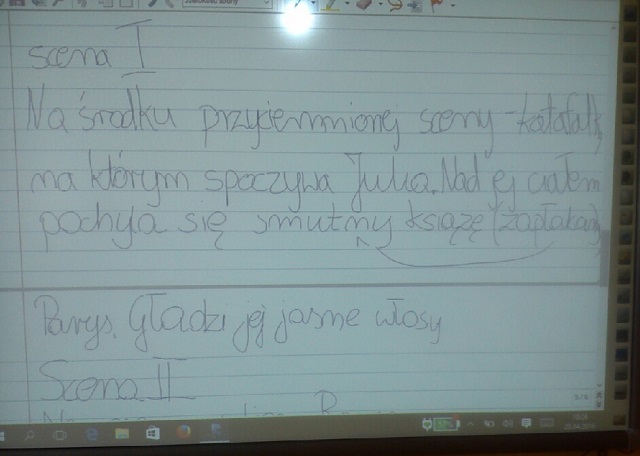 scena I
Na środku przyciemnionej sceny - katafalk,
na którym spoczywa Julia. Nad ej ciałem
pochyla się smutny książę (zapłakany)
Parys. Gładzi jej jasne włosy
Scena II